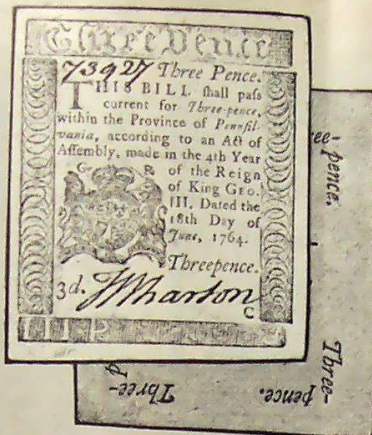 Three Pence
73927 Three Pence.
THIS BILL shall pass
current for Three-pence,
within the Province of Pennsil-
vania, according to an Act of
Assembly, made in the 4th Year
G R of the Reign
of King GEO.
III. Dated the
18th Day of
June, 1764.
Threepence.
3d. Wharton
C
III P
ee-pence.
Three-
pence.
Three-